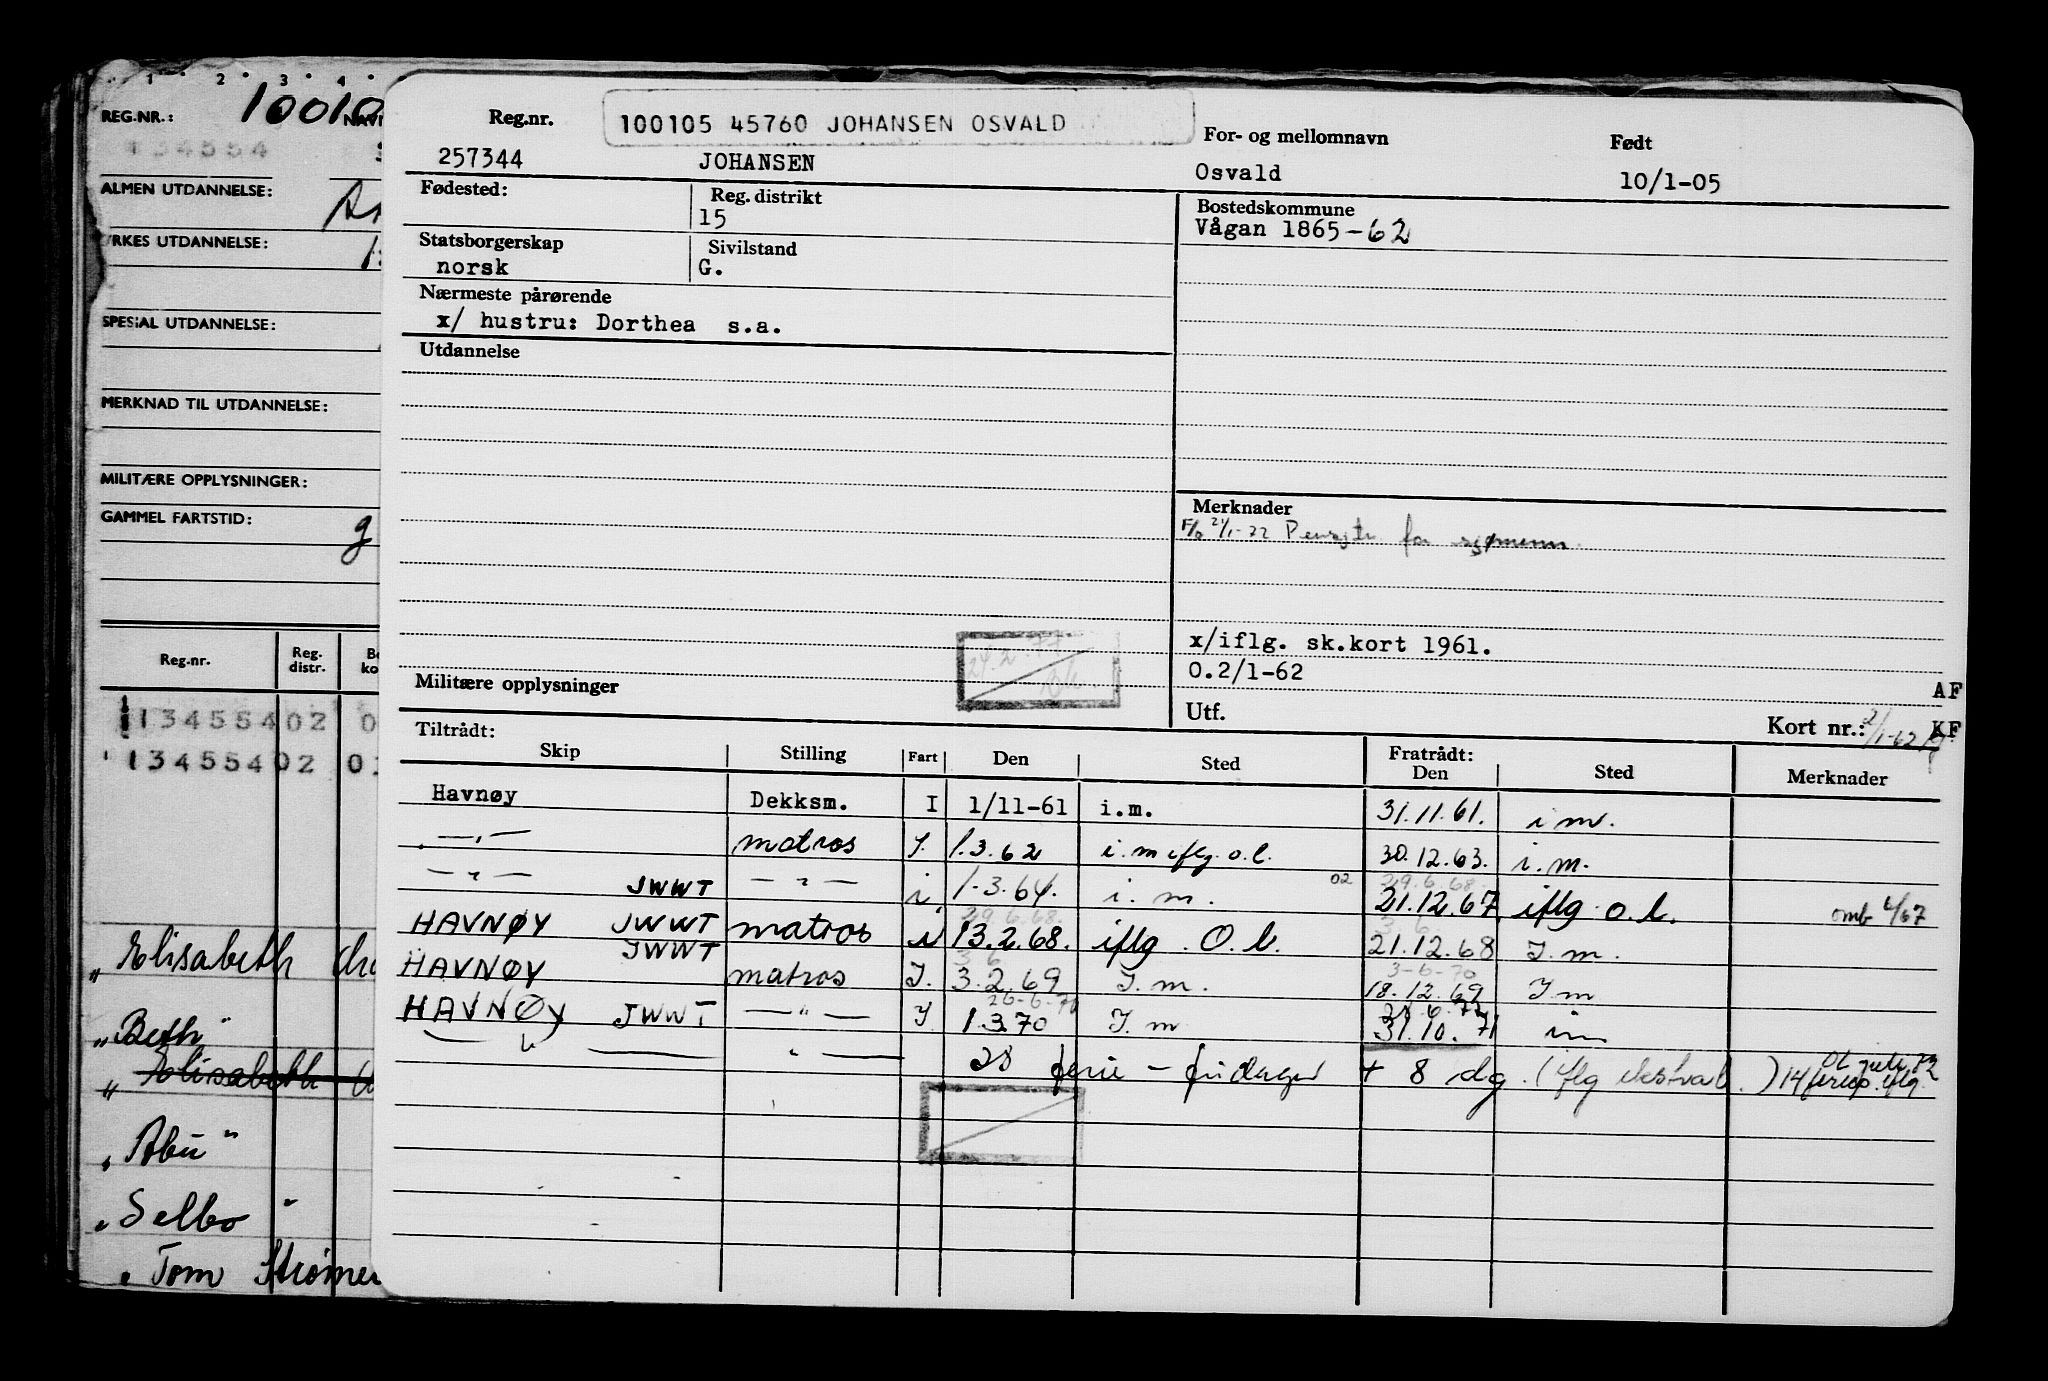 1 2 3 4
REG.NR.: 10010 NAVN
134554
ALMEN UTDANNELSE:
YRKES UTDANNELSE:
SPESIAL UTDANNELSE:
MERKNAD TIL UTDANNELSE:
MILITÆRE OPPLYSNINGER:
GAMMEL FARTSTID: g
Reg.nr. Reg. distr.
13455402 0
13455402 0
„ Elisabeth
„ Beth"
„ Elisabeth
„ Abu"
„ Selbo "
„ Tom Strømer
Reg.nr. 100105 45760 JOHANSEN OSVALD For- og mellomnavn Født
257344 JOHANSEN Osvald 10/1-05
Fødested: Reg. distrikt Bostedskommune
15 Vågan 1865-62
Statsborgerskap Sivilstand
norsk G.
Nærmeste pårørende
x/ hustru: Dorthea s.a.
Utdannelse
Merknader
for sjømenn.
24.2.77
x/iflg. sk.kort 1961.
0.2/1-62
AF
Militære opplysninger Utf. Kort nr.: 2/1-62 KF
Tiltrådt: Fratrådt:
Skip Stilling Fart Den Sted Den Sted Merknader
Havnøy Dekksm. I 1/11-61 i.m. 31.11.61. i m.
—"— matros I. 1.3.62 i.m iflg. o.l. 30.12.63. i.m.
—"— JWWT —"— i. 1.3.64. i. m. 02 29.6.68. 21.12.67 iflg o.l. omb 4/67
HAVNØY JWWT matros i 29.6.68. 13.2.68. iflg. O.l. 3.6. 21.12.68 I.m.
HAVNØY JWWT matros I. 3.6 3.2.69 I.m. 3-6-70 18.12.69 I m
HAVNØY JWWT —"— I 26-6-71 1.3.70 I.m 31.10.71 im
—"— —"— 28 ferie - fridager + 8 dg. (iflg ekstral.) 14